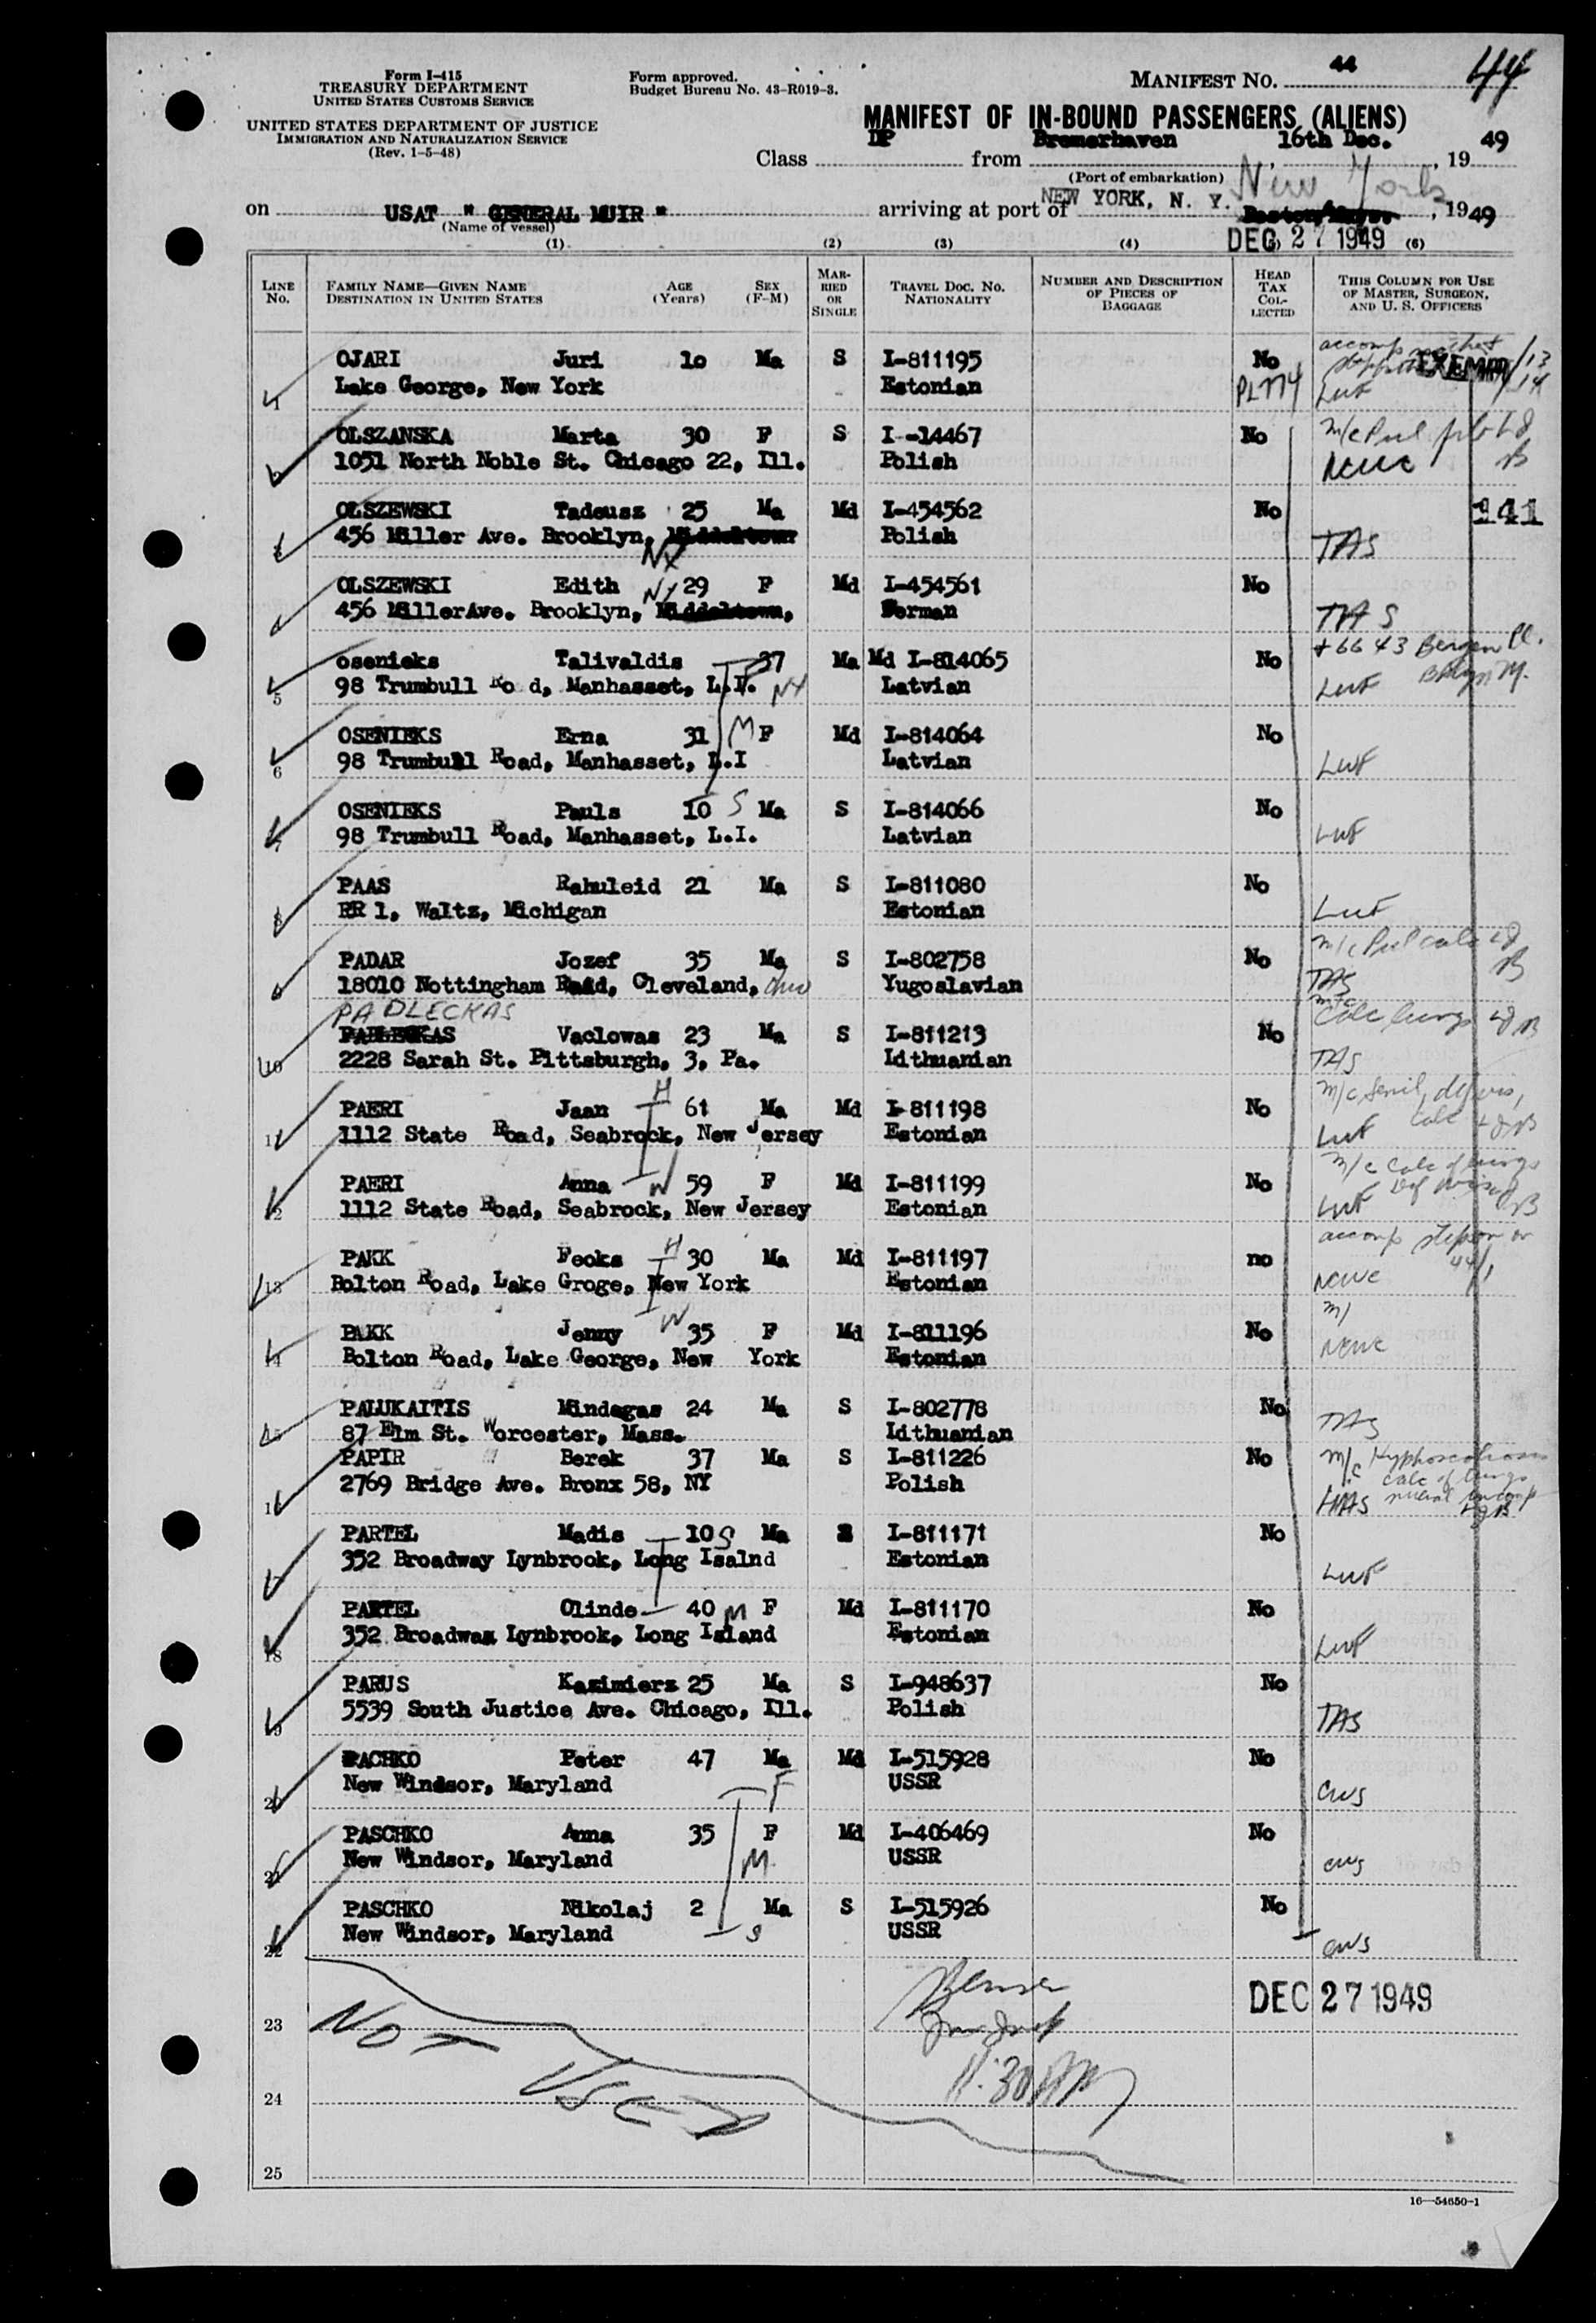 Form I-415
TREASURY DEPARTMENT
UNITED STATES CUSTOMS SERVICE
UNITED STATES DEPARTMENT OF JUSTICE
IMMIGRATION AND NATURALIZATION SERVICE
(Rev. 1-5-48)
Form approved.
Budget Bureau No. 43-R019-3.
MANIFEST NO. 44
44
MANIFEST OF IN-BOUND PASSENGERS (ALIENS)
Class DP from Bremerhaven, 16th Dec., 1949
(Port of embarkation)
on USAT " GENERAL MUIR " arriving at port of NEW YORK, N. Y. New York, 1949
(Name of vessel)
DEC 27 1949
(1) (2) (3) (4) (6)
LINE NO. FAMILY NAME—GIVEN NAME DESTINATION IN UNITED STATES AGE (Years) SEX (F-M) MARRIED OR SINGLE TRAVEL DOC. NO. NATIONALITY NUMBER AND DESCRIPTION OF PIECES OF BAGGAGE HEAD TAX COLLECTED THIS COLUMN FOR USE OF MASTER, SURGEON, AND U. S. OFFICERS
1 OJARI Juri 10 Ma S I-811195 No accomp EXEMPT 13
Lake George, New York Estonian PL 774 LWF 14
OLSZANSKA Marta 30 F S I--14467 No m/c
1051 North Noble St. Chicago 22, Ill. Polish NCWC
OLSZEWSKI Tadeusz 25 Ma Md I-454562 No 141
456 Miller Ave. Brooklyn, Middletown NY Polish TAS
OLSZEWSKI Edith 29 F Md I-454561 No
456 MillerAve. Brooklyn, NY German TAS
5 osenieks Talivaldis 37 Ma Md I-814065 No + 6643 Bergen Pl.
98 Trumbull Ro d, Manhasset, L.I. NY Latvian LWF Bklyn NY.
6 OSENIEKS Erna 31 M F Md I-814064 No
98 Trumbull Road, Manhasset, L.I Latvian LWF
7 OSENIEKS Pauls 10 S Ma S I-814066 No
98 Trumbull Road, Manhasset, L.I. Latvian LWF
8 PAAS Rahuleid 21 Ma S I-811080 No
RR 1, Waltz, Michigan Estonian LWF
9 PADAR Jozef 35 Ma S I-802758 No m/c Pul calc
18010 Nottingham Road, Cleveland, Ohio Yugoslavian TAS
PADLECKAS
10 Vaclowas 23 Ma S I-811213 No m/c Calc lungs
2228 Sarah St. Pittsburgh, 3, Pa. Lithuanian TAS
11 PAERI Jaan H 61 Ma Md I-811198 No m/c Senil,
1112 State Road, Seabrock, New Jersey Estonian LWF calc
12 PAERI Anna W 59 F Md I-811199 No m/c Calc of lungs
1112 State Road, Seabrock, New Jersey Estonian LWF
13 PAKK Feoks H 30 Ma Md I-811197 no accomp stepson on
Bolton Road, Lake Groge, New York Estonian NCWC 44/1
14 PAKK Jenny W 35 F Md I-811196 No
Bolton Road, Lake George, New York Estonian NCWC
15 PALUKAITIS Mindagas 24 Ma S I-802778 No
87 Elm St. Worcester, Mass. Lithuanian TAS
PAPIR Berek 37 Ma S I-811226 No m/c Kyphoscoliosis
calc of lungs
2769 Bridge Ave. Bronx 58, NY Polish HIAS
PARTEL Madis 10 S Ma I-811171 No
352 Broadway Lynbrook, Long Isalnd Estonian LWF
18 PARTEL Olinde 40 M F Md I-811170 No
352 Broadwam Lynbrook, Long Island Estonian LWF
19 PARUS Kazimierz 25 Ma S I-948637 No
5539 South Justice Ave. Chicago, Ill. Polish TAS
20 PACHKO Peter 47 Ma Md I-515928 No
New Windsor, Maryland F USSR CWS
21 PASCHKO Anna 35 F Md I-406469 No
New Windsor, Maryland M USSR CWS
22 PASCHKO Nikolaj 2 Ma S I-515926 No
New Windsor, Maryland S USSR CWS
DEC 27 1949
23 Not
Used
11:30 AM
24
25
16—54650-1